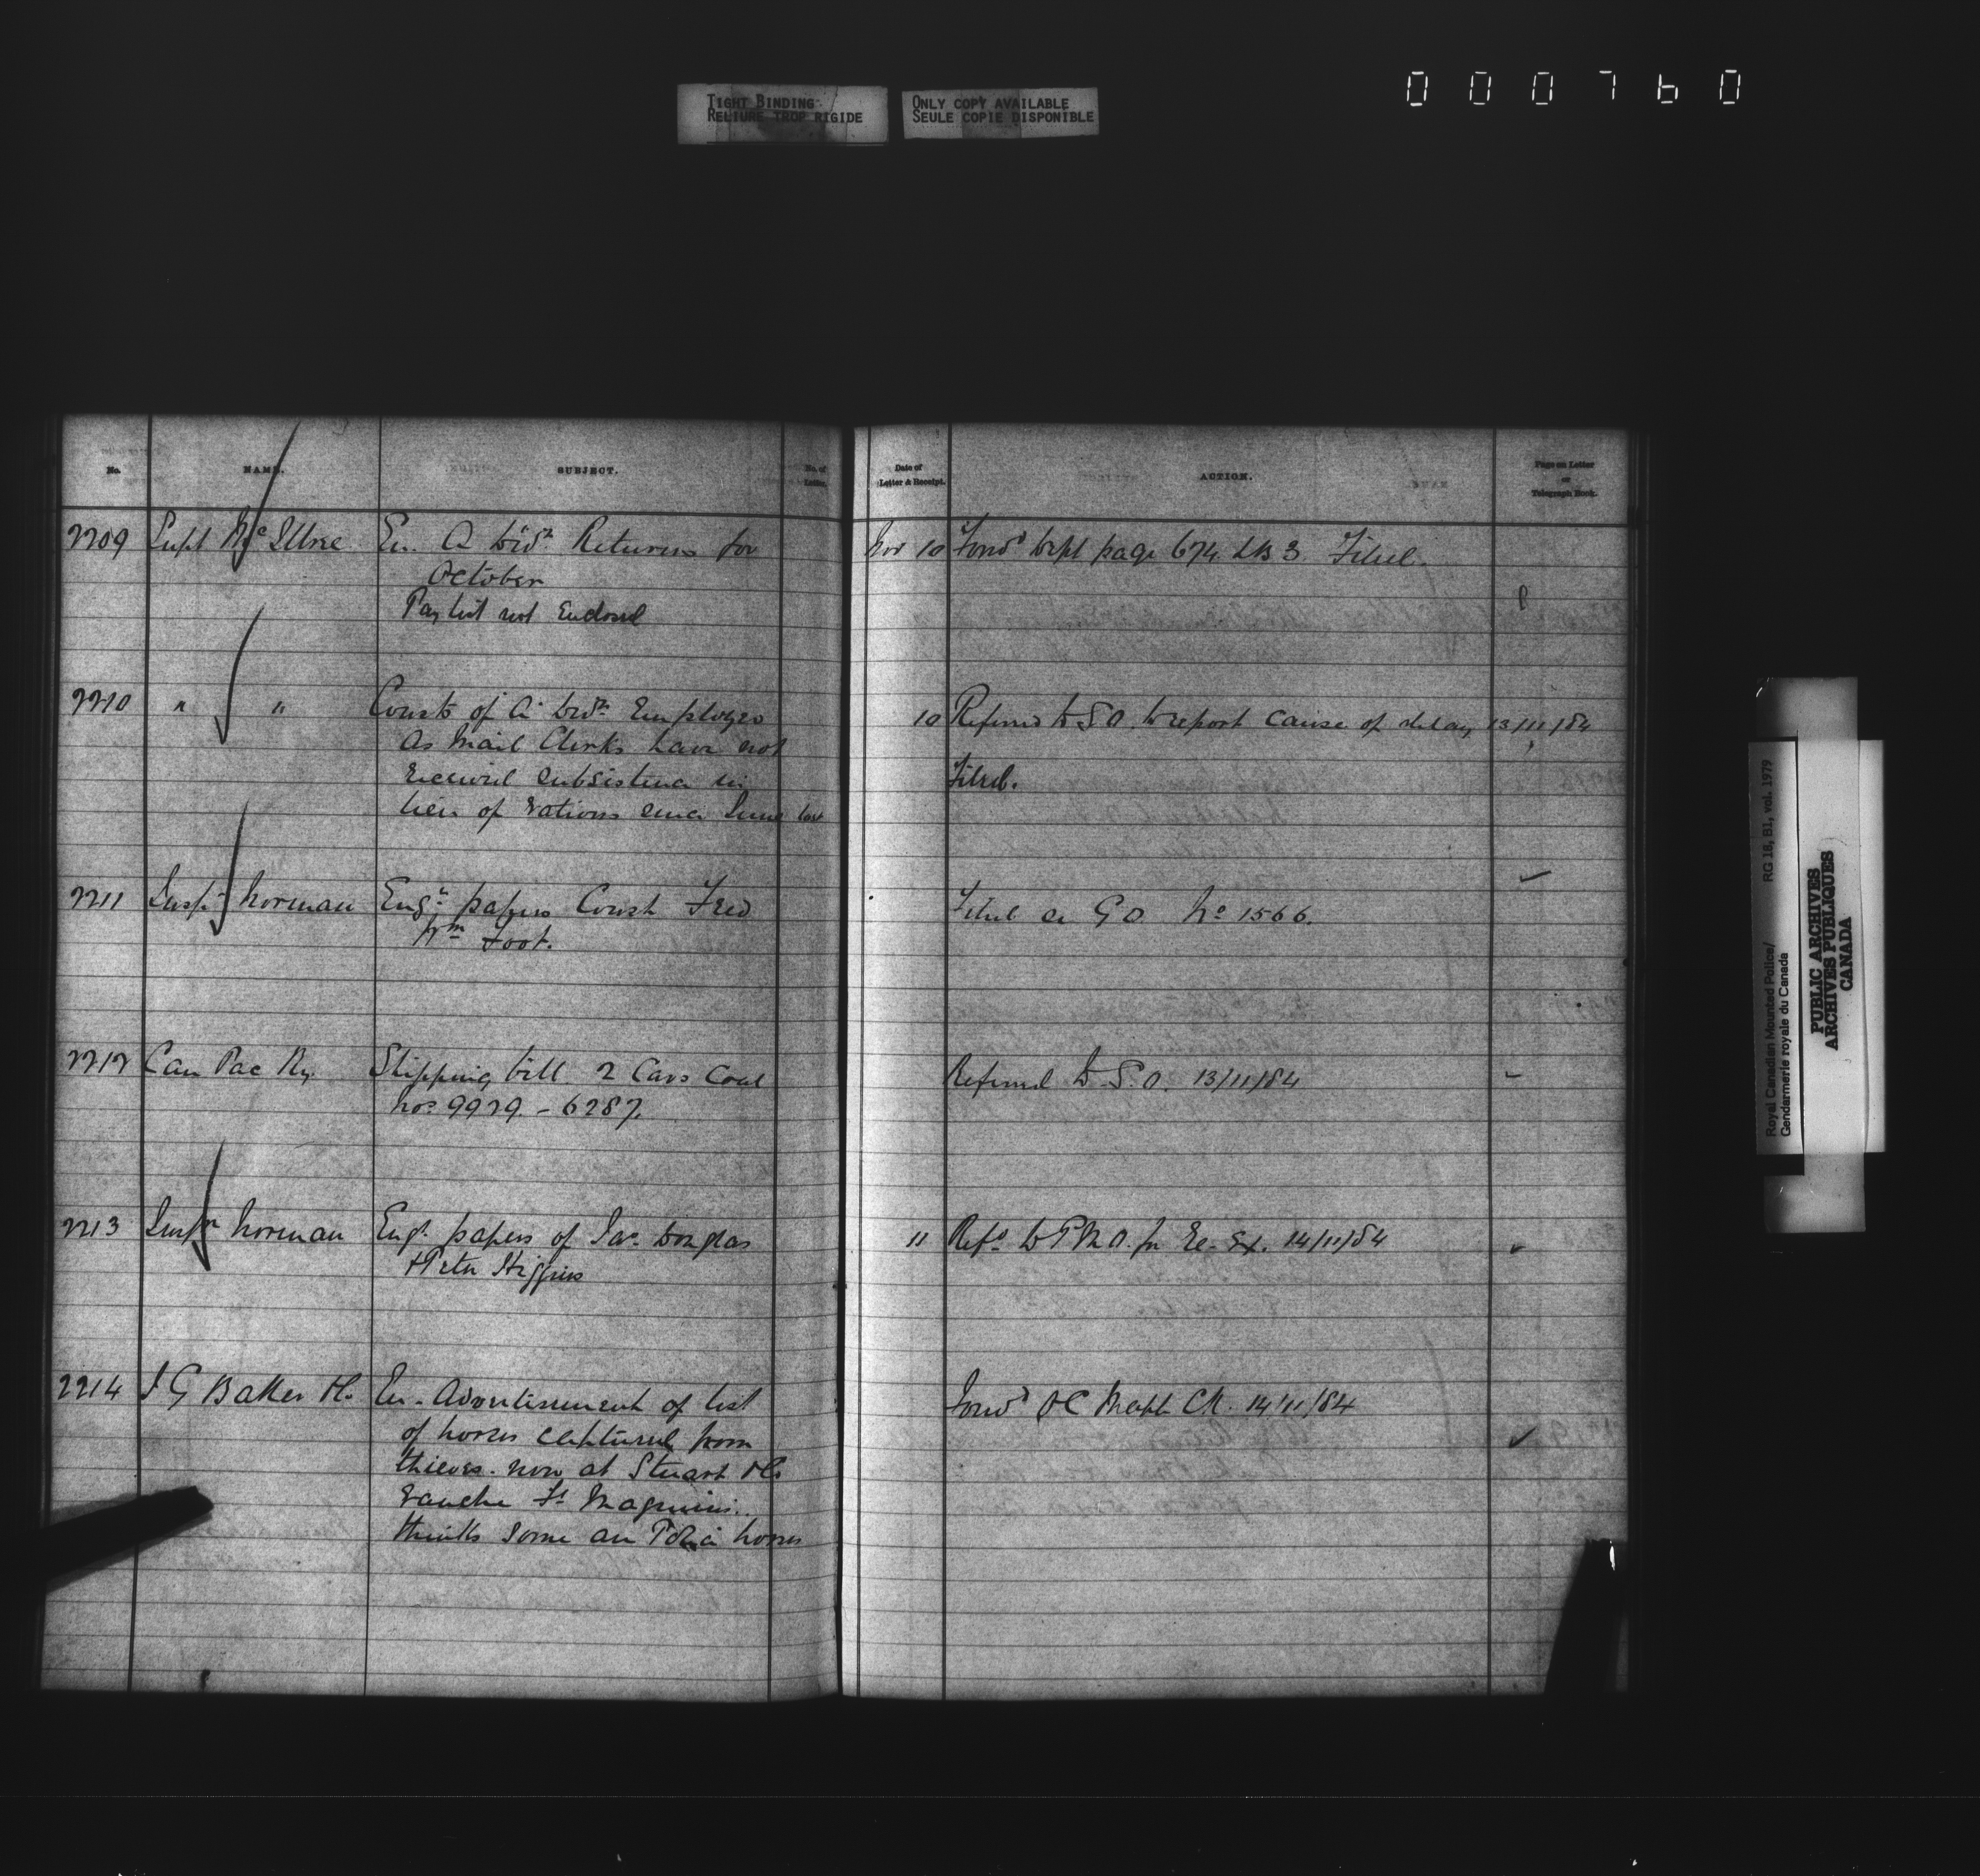 TIGHT BINDING
RELIURE TROP RIGIDE
ONLY COPY AVAILABLE
SEULE COPIE DISPONIBLE
000760
No.
NAME.
SUBJECT.
No. of
Letter.
Date of
Letter & Receipt.
ACTION.
Page on Letter
or
Telegraph Book.
2209 Supt McIllree En. A Divn Returns for
October
Pay list not Enclosed
Nov 10 Forwd Dept page 674 LB 3. Filed.
2210 " " Consts of A Divn Employed
as Mail Clerks have not
received subsistence in
lieu of rations since June last
10 Referred to S.O. to report cause of delay 13/11/84
Filed.
2211 Inspr Norman Engt papers Const Fred
Wm Foot.
Filed G O No 1566.
2212 Can Pac Ry. Shipping bill. 2 Cars Coal
Nos 9929. - 6287.
Referred to S.O. 13/11/84
2213 Inspr Norman Engt papers of Jas. Douglas
+ Peter Higgins
11 Refd to P.M.O. for Re-Ex. 14/11/84
2214 I G Baker & Co En. Advertisement of list
of horses captured from
thieves. now at Stuart & Co
ranche Ft Maginnis.
thinks some are Police horses
Forwd OC Maple Ck. 14/11/84
Royal Canadian Mounted Police/
Gendarmerie royale du Canada
RG 18, B1, vol. 1979
PUBLIC ARCHIVES
ARCHIVES PUBLIQUES
CANADA